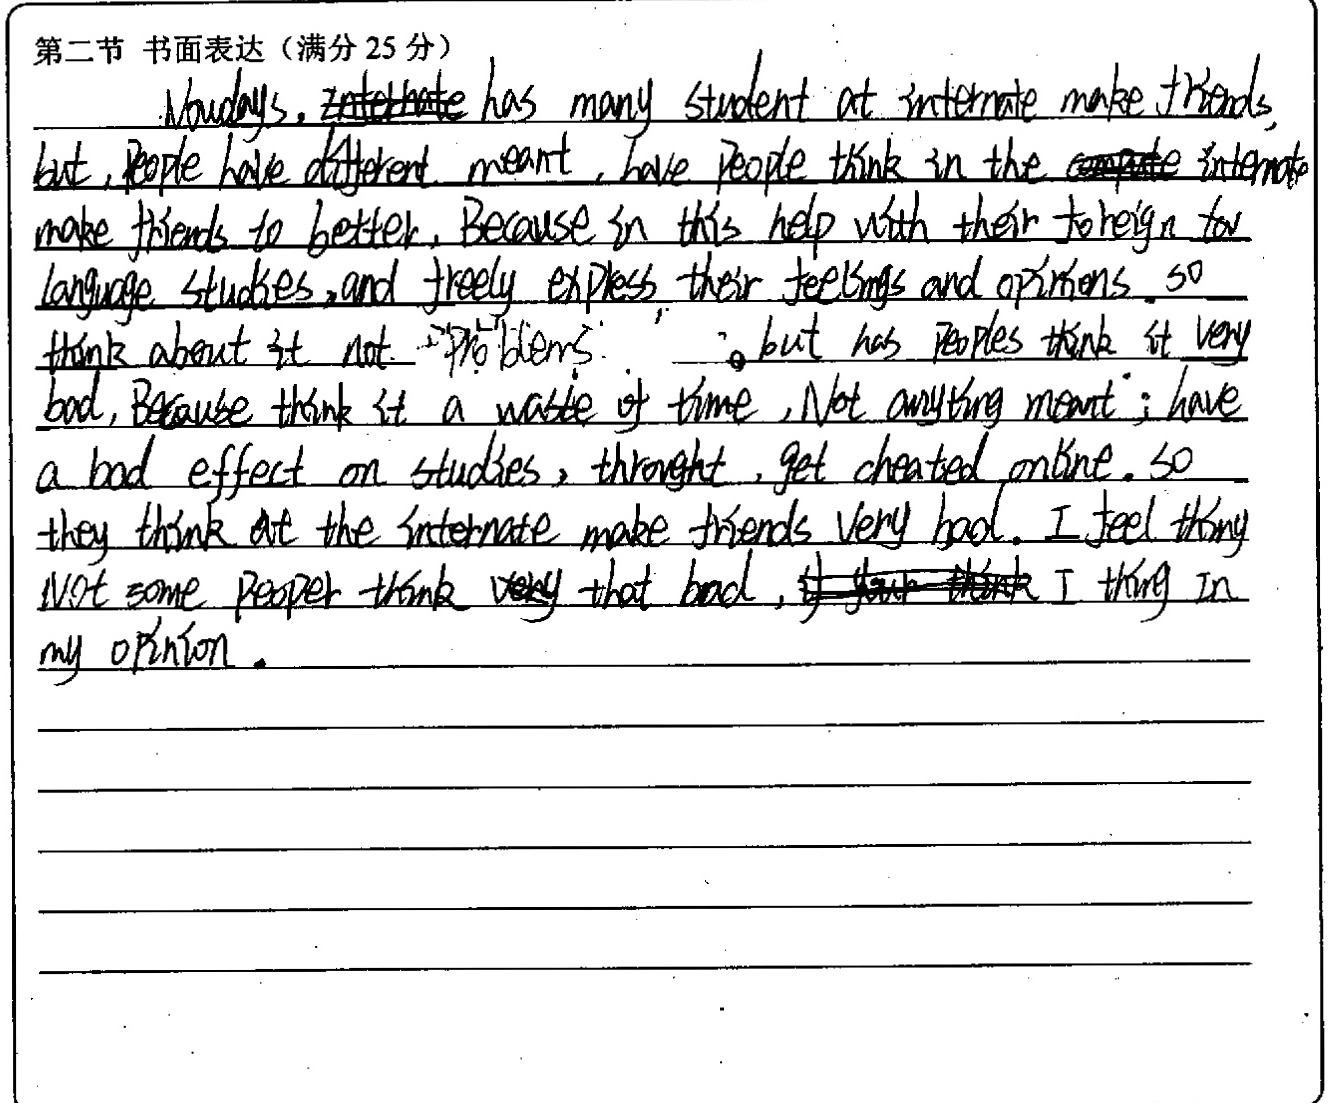 第二节 书面表达（满分 25 分）
Noudays, has many student at internate make friends,
but, People have different meant, have People think in the internate
make friends to better, Because in this help with their foreign for
language studies, and freely express their feelings and opinions. so
think about it not problems. but has Peoples think it very
bad, Because think it a waste of time, Not anything meant; have
a bad effect on studies, throught, get cheated online. so
they think at the internate make friends very bad. I feel thing
Not some peoper think very that bad, I thing In
my opinion.